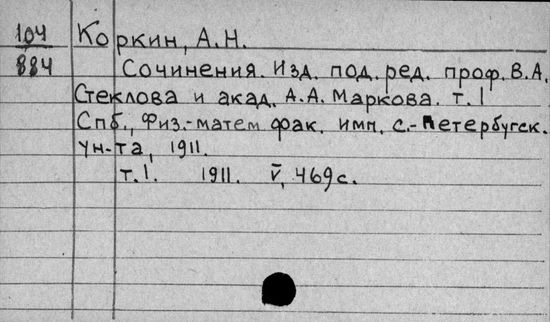 104 Коркин, А.Н.
884 Сочинения. Изд. под. ред. проф. В.А.
Стеклова и акад. А.А. Маркова. т. I
Спб., Физ.-матем фак. имп. С.-Петербугск.
ун-та, 1911.
т. I. 1911. V, 469 с.